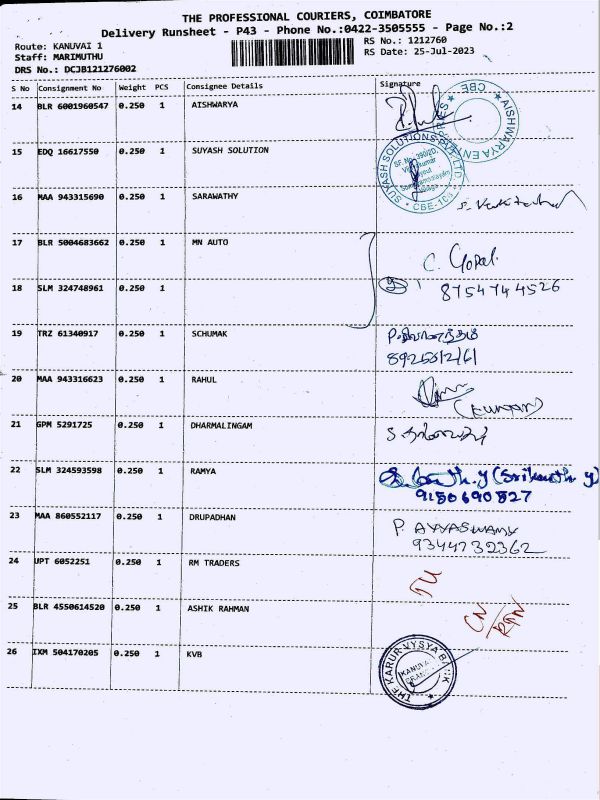 THE PROFESSIONAL COURIERS, COIMBATORE
Delivery Runsheet - P43 - Phone No.:0422-3505555 - Page No.:2
Route: KANUVAI 1
RS No.: 1212760
Staff: MARIMUTHU
RS Date: 25-Jul-2023
DRS No.: DCJB121276002
S No Consignment No Weight PCS Consignee Details Signature
14 BLR 6001960547 0.250 1 AISHWARYA
CBE
AISHWARYA
15 EDQ 16617550 0.250 1 SUYASH SOLUTION
SUYASH SOLUTIONS PVT. LTD.
CBE-108
16 MAA 943315690 0.250 1 SARAWATHY
17 BLR 5004683662 0.250 1 MN AUTO
C. Gopal
18 SLM 324748961 0.250 1
8754744526
19 TRZ 61340917 0.250 1 SCHUMAK
20 MAA 943316623 0.250 1 RAHUL
21 GPM 5291725 0.250 1 DHARMALINGAM
22 SLM 324593598 0.250 1 RAMYA
(Srikanth y)
9180690827
23 MAA 860552117 0.250 1 DRUPADHAN
P. AYYASWAMY
9344732362
24 UPT 6052251 0.250 1 RM TRADERS
25 BLR 4550614520 0.250 1 ASHIK RAHMAN
CN
RTN
26 IXM 504170205 0.250 1 KVB
THE KARUR VYSYA BANK